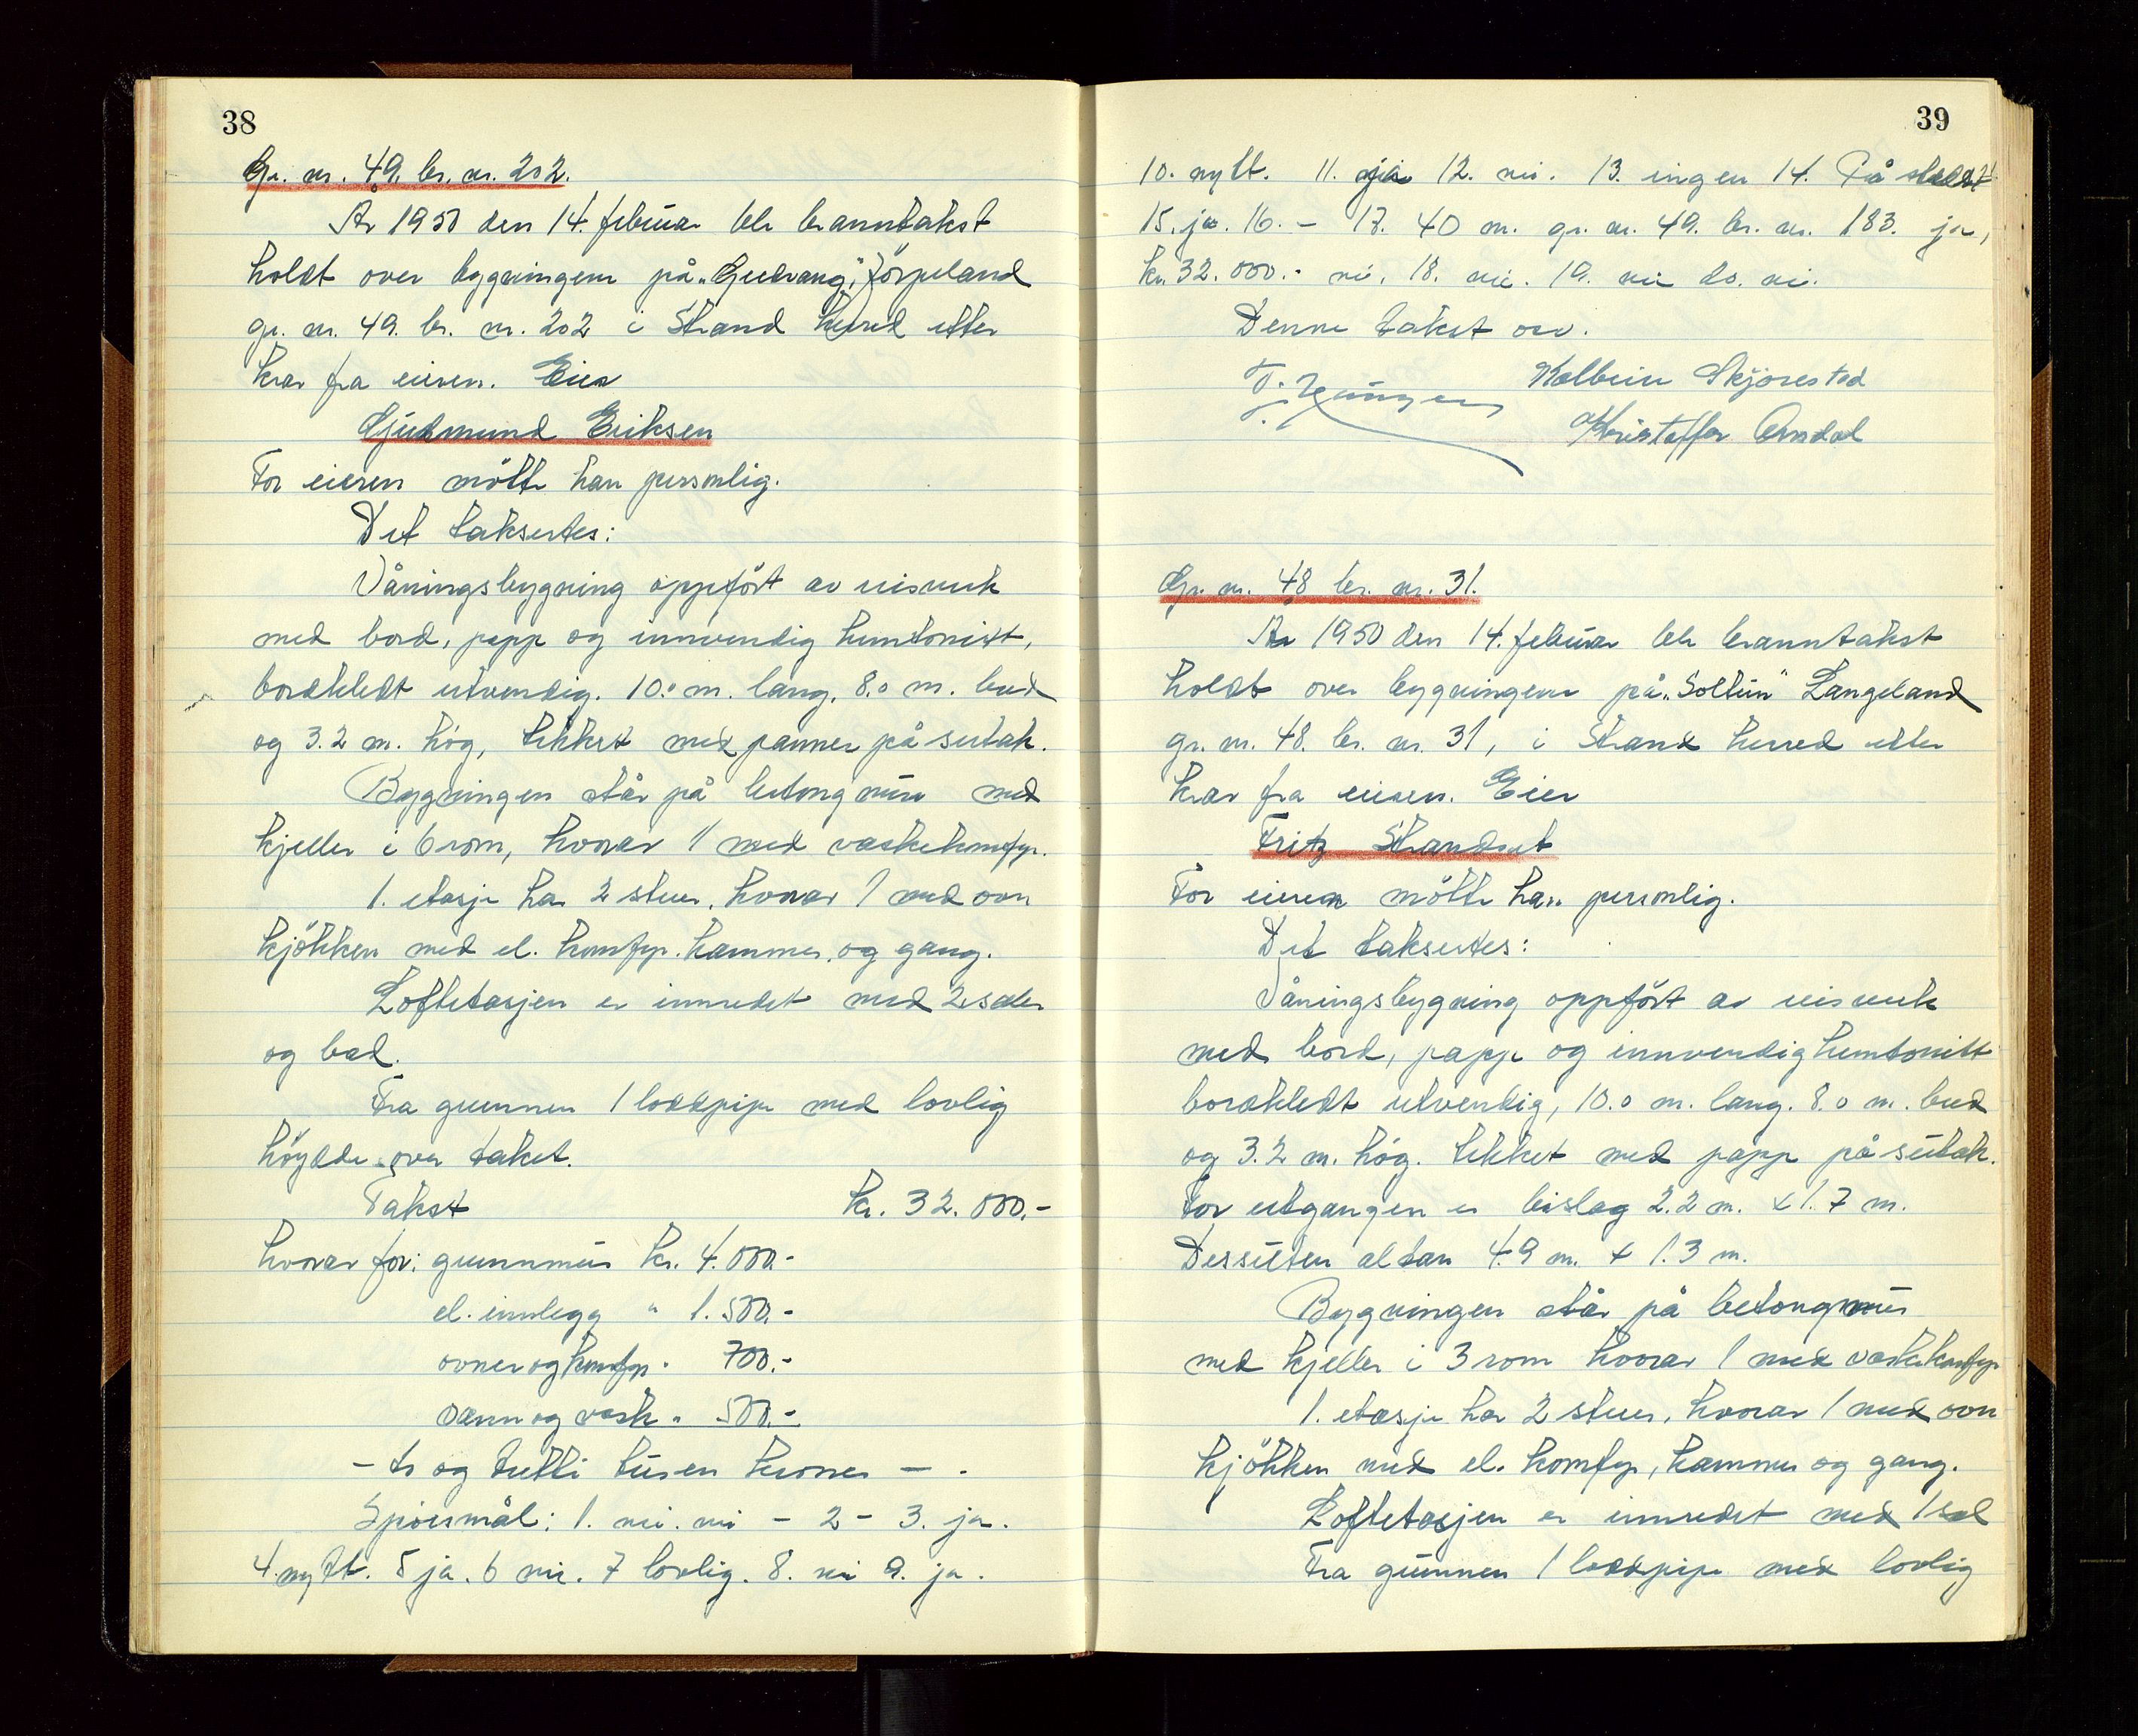 38
Gr. nr. 49. br. nr. 202.
År 1950 den 14. februar ble branntakst
holdt over bygningene på „Gudvang", Jörpeland
gr. nr. 49. br. nr. 202 i Strand herred etter
krav fra eieren. Eier
Gudmund Eriksen
For eieren mötte han personlig.
Det taksertes:
Våningsbygning oppfört av reisverk
med bord, papp og innvendig huntonitt,
bordkledt utvendig. 10.0 m. lang, 8.0 m. bred
og 3.2 m. hög, tekket med panner på sutak.
Bygningen står på betongmur med
kjeller i 6 rom, hvorav 1 med vaskekomfyr.
1. etasje har 2 stuer, hvorav 1 med ovn
kjökken med el. komfyr. kammer, og gang.
Loftetasjen er innredet med 2 saler
og bad.
Fra grunnen 1 loddpipe med lovlig
höyde over taket.
Takst kr. 32.000.-
hvorav for: grunnmur kr. 4.000.-
el. innlegg " 1.500.-
ovner og komfyr " 700.-
vann og vask " 500.-
- to og tretti tusen kroner - .
Spörsmål: 1. nei. nei - 2 - 3. ja.
4. nytt. 5 ja. 6 nei. 7 lovlig. 8. nei 9. ja.
39
10. nytt. 11. ja 12. nei. 13. ingen 14. På stedet
15. ja. 16. - 17. 40 m. gr. nr. 49. br. nr. 183. ja,
kr. 32.000.- nei, 18. nei. 19. nei 20. nei.
Denne takst osv.
Kolbein Skjörestad
Kristoffer Omdal
Gr. nr. 48 br. nr. 31.
År 1950 den 14. februar ble branntakst
holdt over bygningene på „Soltun" Langeland
gr. nr. 48. br. nr. 31, i Strand herred etter
krav fra eieren. Eier
Fritz Strandset
For eieren mötte han personlig.
Det taksertes:
Våningsbygning oppfört av reisverk
med bord, papp og innvendig huntonitt
bordkledt utvendig, 10.0 m. lang. 8.0 m. bred
og 3.2 m. hög. tekket med papp på sutak.
For utgangen er bislag 2.2 m. x 1.7 m.
Dessuten altan 4.9 m. x 1.3 m.
Bygningen står på betongmur
med kjeller i 3 rom hvorav 1 med vaskekomfyr
1. etasje har 2 stuer, hvorav 1 med ovn
kjökken med el. komfyr, kammer og gang.
Loftetasjen er innredet med 1 sal
Fra grunnen 1 loddpipe med lovlig